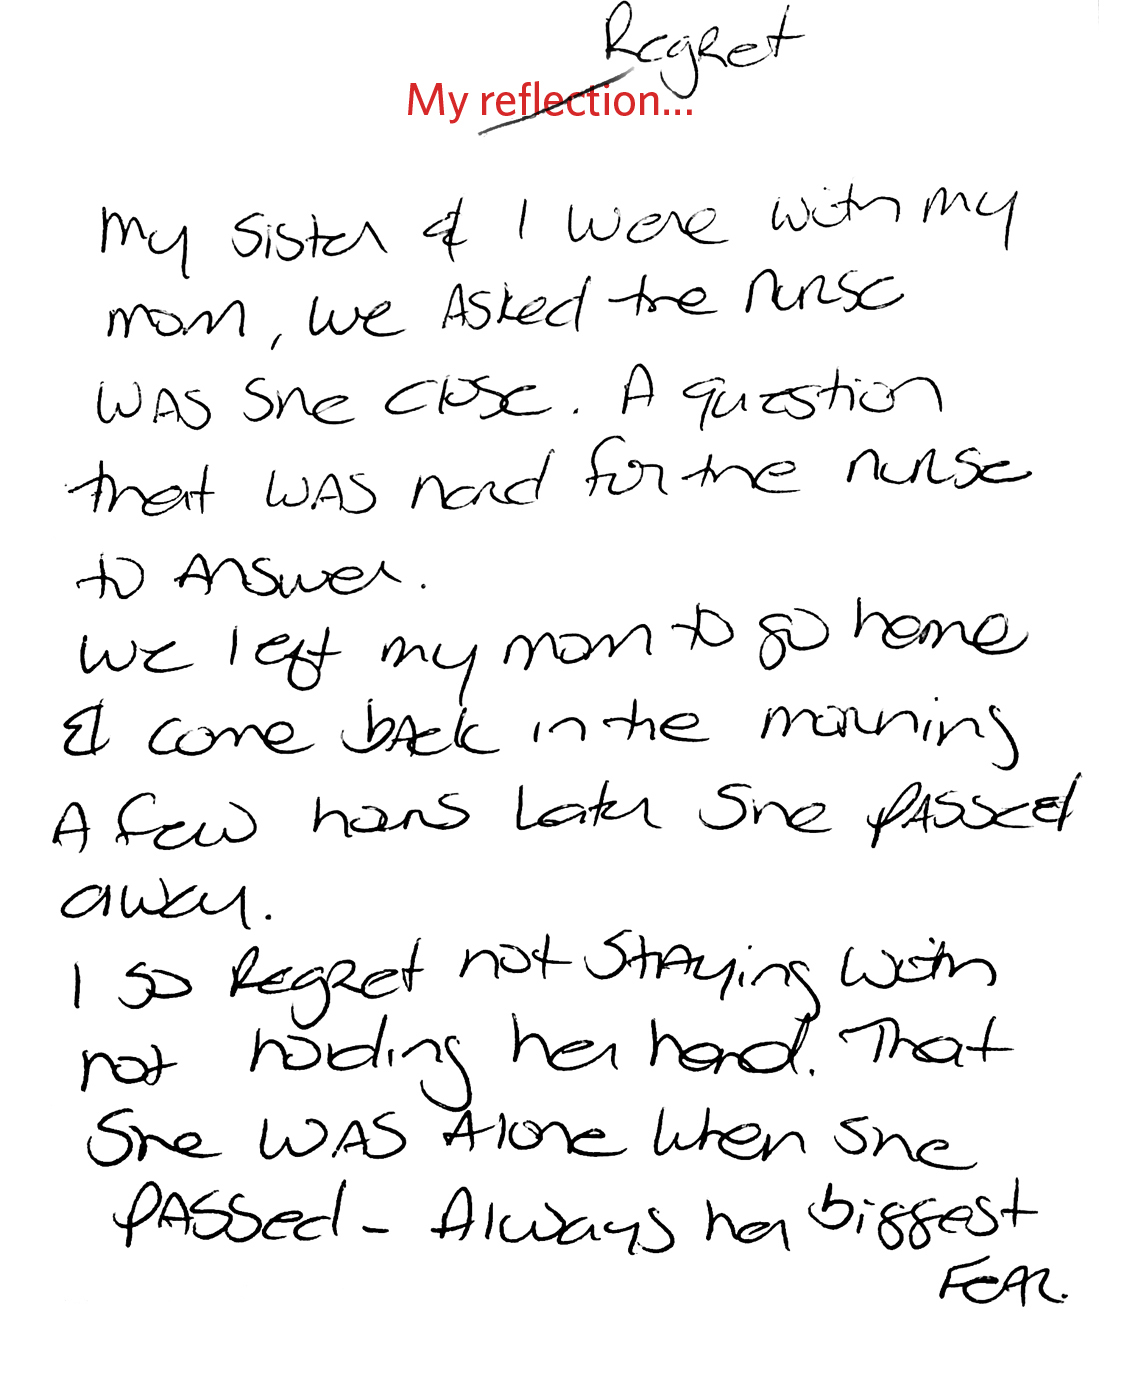 Regret
My reflection...
My sister & I were with my
mom, we Asked the nurse
WAS she close. A question
that WAS hard for the nurse
to Answer.
We left my mom to go home
& come bAck in the morning
A few hours Later She pASSed
away.
I so Regret not StAying with
not holding her hand. That
She WAS Alone when she
pASSed - Always her biggest
FeAR.